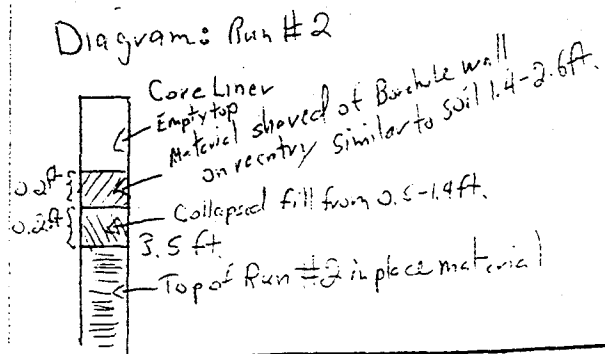 Diagram: Run #2
Core Liner
Empty top
Material shaved of Borehole wall
on reentry similar to soil 1.4-2.6ft.
0.2ft
Collapsed fill from 0.5-1.9ft.
0.2ft
3.5 ft.
Top of Run #2 in place material